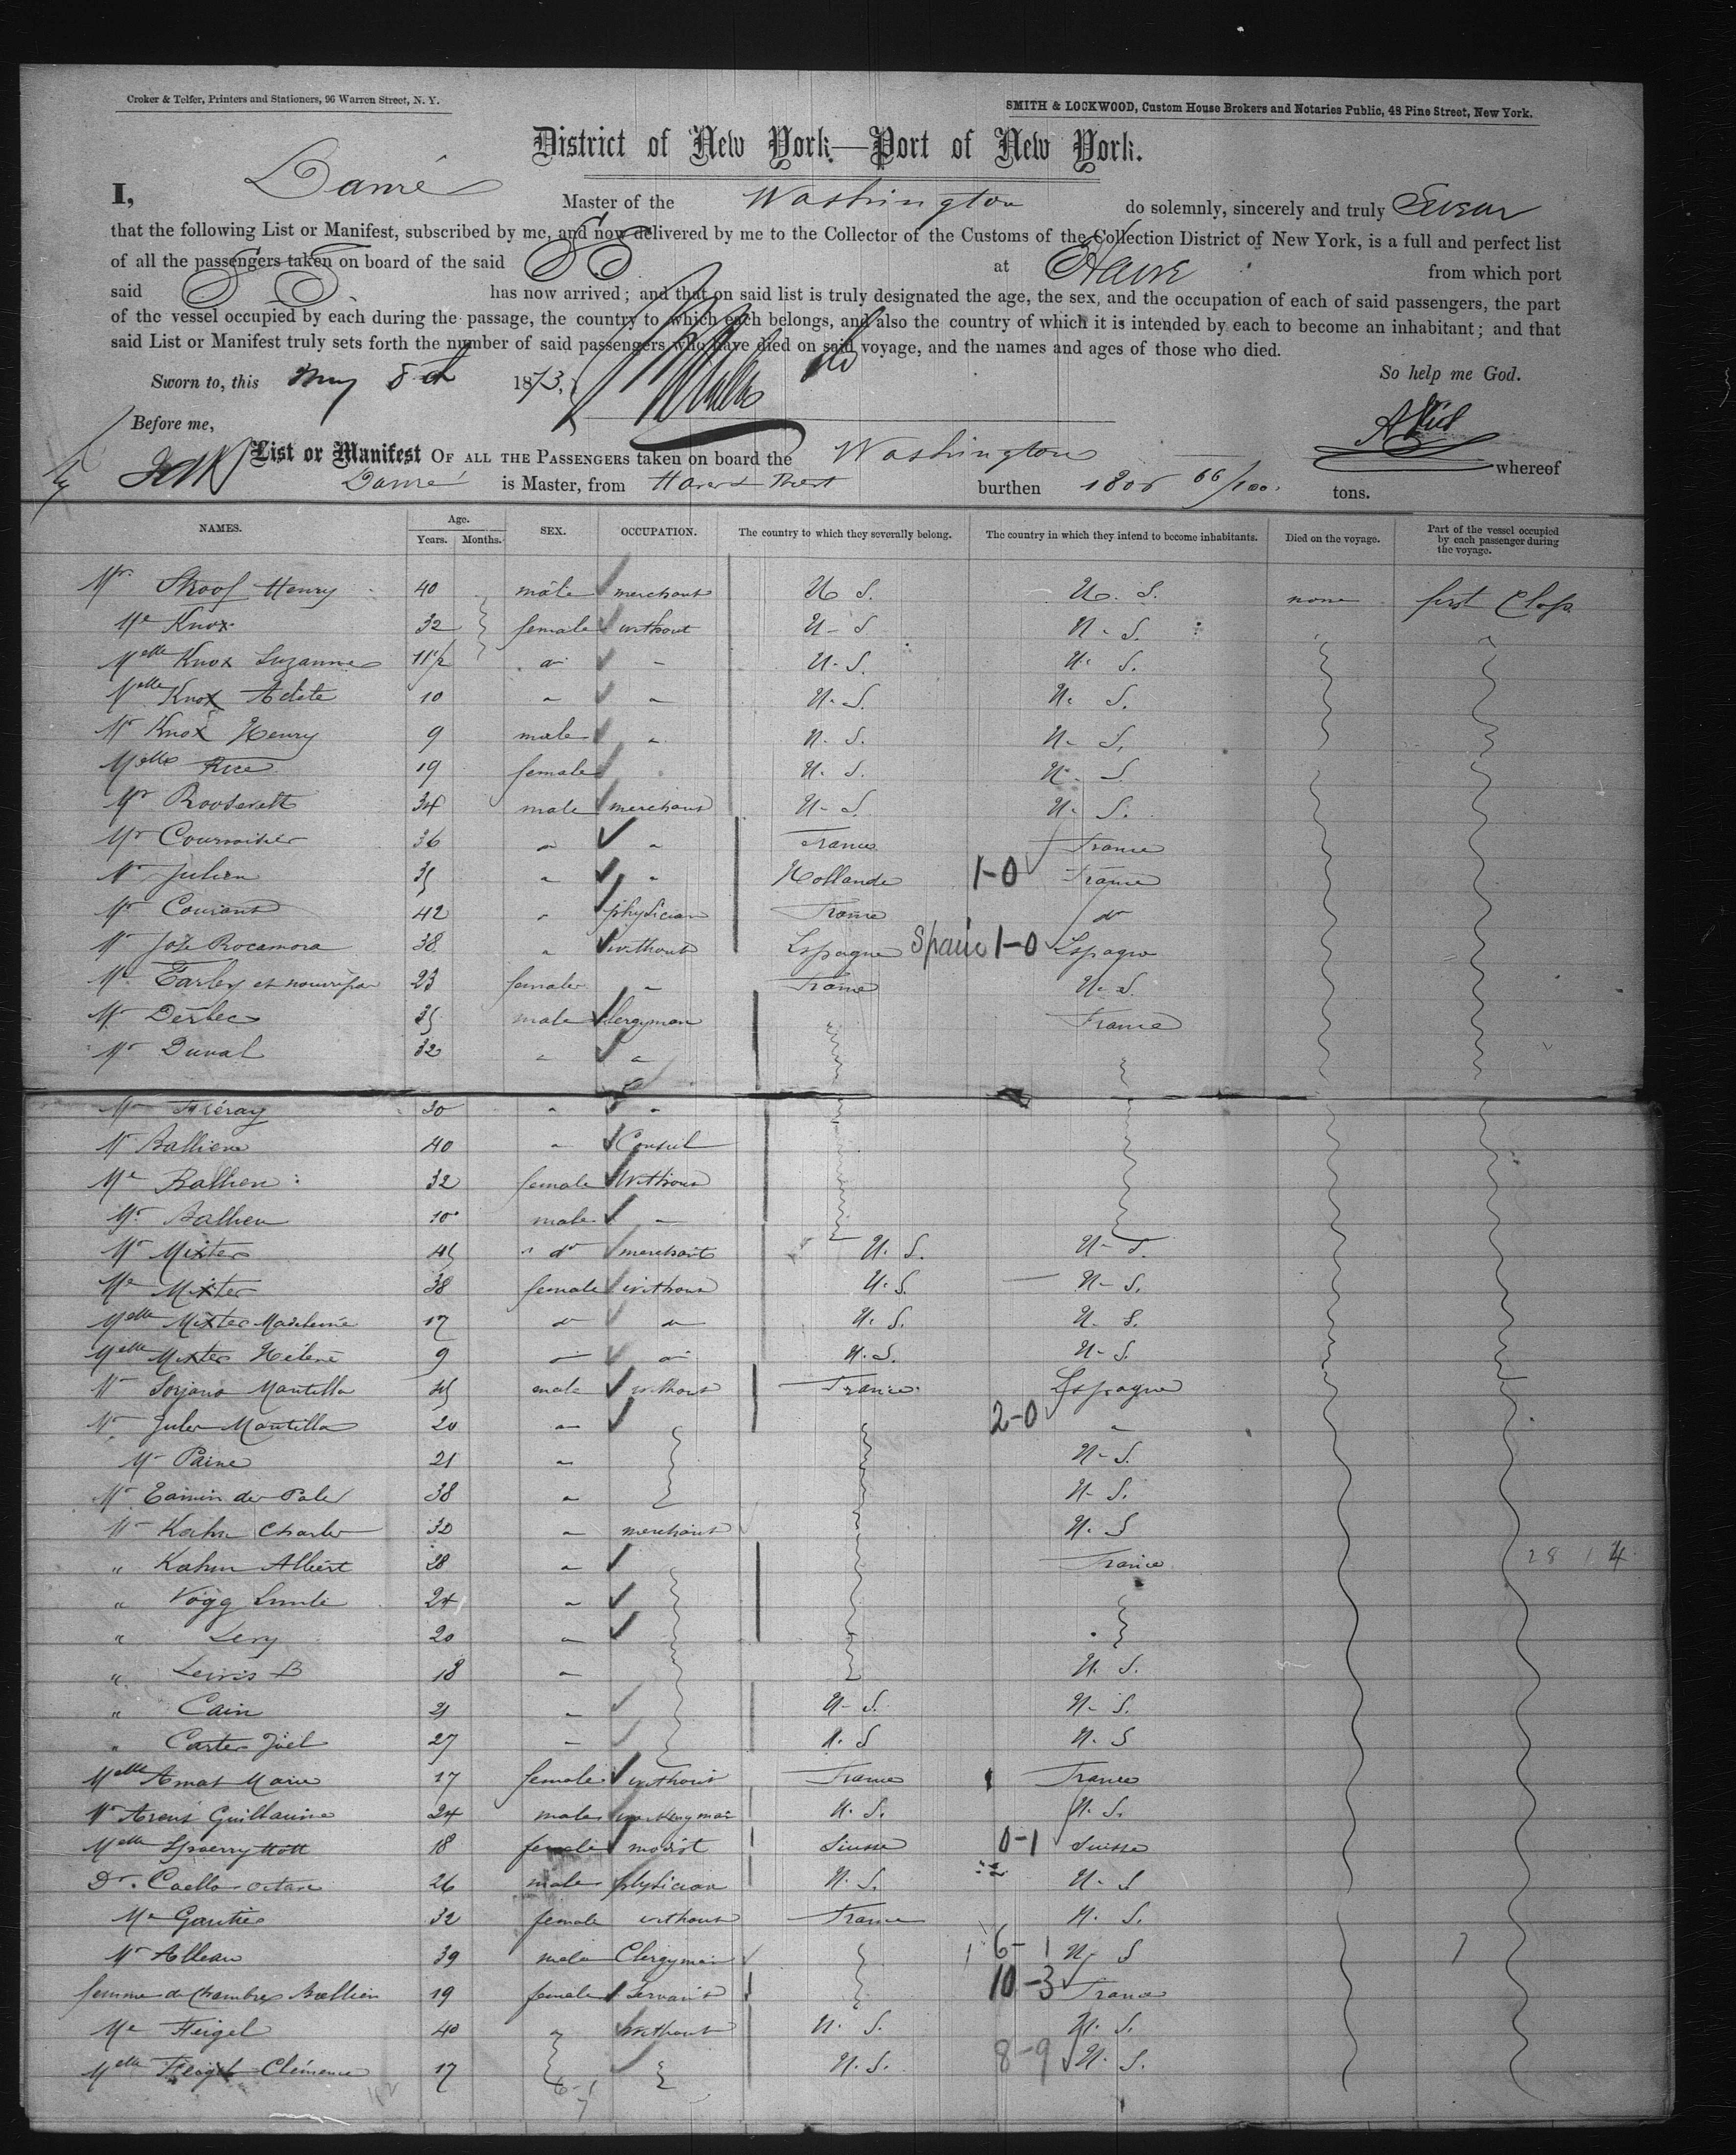 Croker & Telfer, Printers and Stationers, 96 Warren Street, N. Y.
SMITH & LOCKWOOD, Custom House Brokers and Notaries Public, 48 Pine Street, New York.
District of New York—Port of New York.
I, Danré Master of the Washington do solemnly, sincerely and truly Swear
that the following List or Manifest, subscribed by me, and now delivered by me to the Collector of the Customs of the Collection District of New York, is a full and perfect list
of all the passengers taken on board of the said SS at Havre from which port
said SS has now arrived; and that on said list is truly designated the age, the sex, and the occupation of each of said passengers, the part
of the vessel occupied by each during the passage, the country to which each belongs, and also the country of which it is intended by each to become an inhabitant; and that
said List or Manifest truly sets forth the number of said passengers who have died on said voyage, and the names and ages of those who died.
Sworn to, this May 8th 1873, So help me God.
Before me,
List or Manifest OF ALL THE PASSENGERS taken on board the Washington whereof
Danré is Master, from Havre & Brest burthen 1806 66/100 tons.
NAMES. Age. Years. Months. SEX. OCCUPATION. The country to which they severally belong. The country in which they intend to become inhabitants. Died on the voyage. Part of the vessel occupied by each passenger during the voyage.
Mr Henry 40 male merchant U. S. U. S. none first Class
Me Knox 32 female without U-S U-S.
Melle Knox Suzanne 11 1/2 U-S. U. S.
Melle Knox 10 U-S. U. S.
Mr Knox Henry 9 male U. S. U- S.
Melle Rice 19 female U. S. U. S
Mr Roosevelt 34 male merchant U-S. U. S.
Mr 36 France France
Mr Julien 35 Hollande 1-0 France
Mr Courant 42 physician France do
Mr José Rocamora 38 without Espagne Spain 1-0 Espagne
Me Farley et 23 female France U. S.
Mr 35 male Clergyman France
Mr Duval 32
Mr 30
Mr Ballieu 40 Consul
Me Ballieu 32 female Without
Mr Ballieu 10 male
Mr Mixter 45 do merchant U. S. U-S.
Me Mixter 38 female without U. S. U-S.
Melle Mixter Madeleine 17 U. S. U. S.
Melle Mixter Hélène 9 U. S. U-S.
Mr Mantilla 45 male without France Espagne
Mr Jules Mantilla 20 2-0
Mr Paine 21 U-S.
Mr 38 U-S.
Mr Kahn Charles 32 merchant U. S
" Kahn Albert 28 France 28 14
" 24
" Levy 20
" Lewis B 18 U. S.
" Cain 21 U-S. U-S.
" Carter Joel 27 U. S U. S
Melle Amat Marie 17 female without France France
Mr Guillaume 24 male U. S. U. S.
Melle 18 female modist Suisse 0-1 Suisse
Dr. 26 male physician U. S. U-S
Me Gautier 32 female without France U. S.
Mr Alleau 39 male Clergyman 6-1 U. S
femme de chambre Ballieu 19 female Servant 10-3 France
Me Feigel 40 without U. S. U. S.
Melle Feigel Clémence 17 U. S. 8-9 U. S.